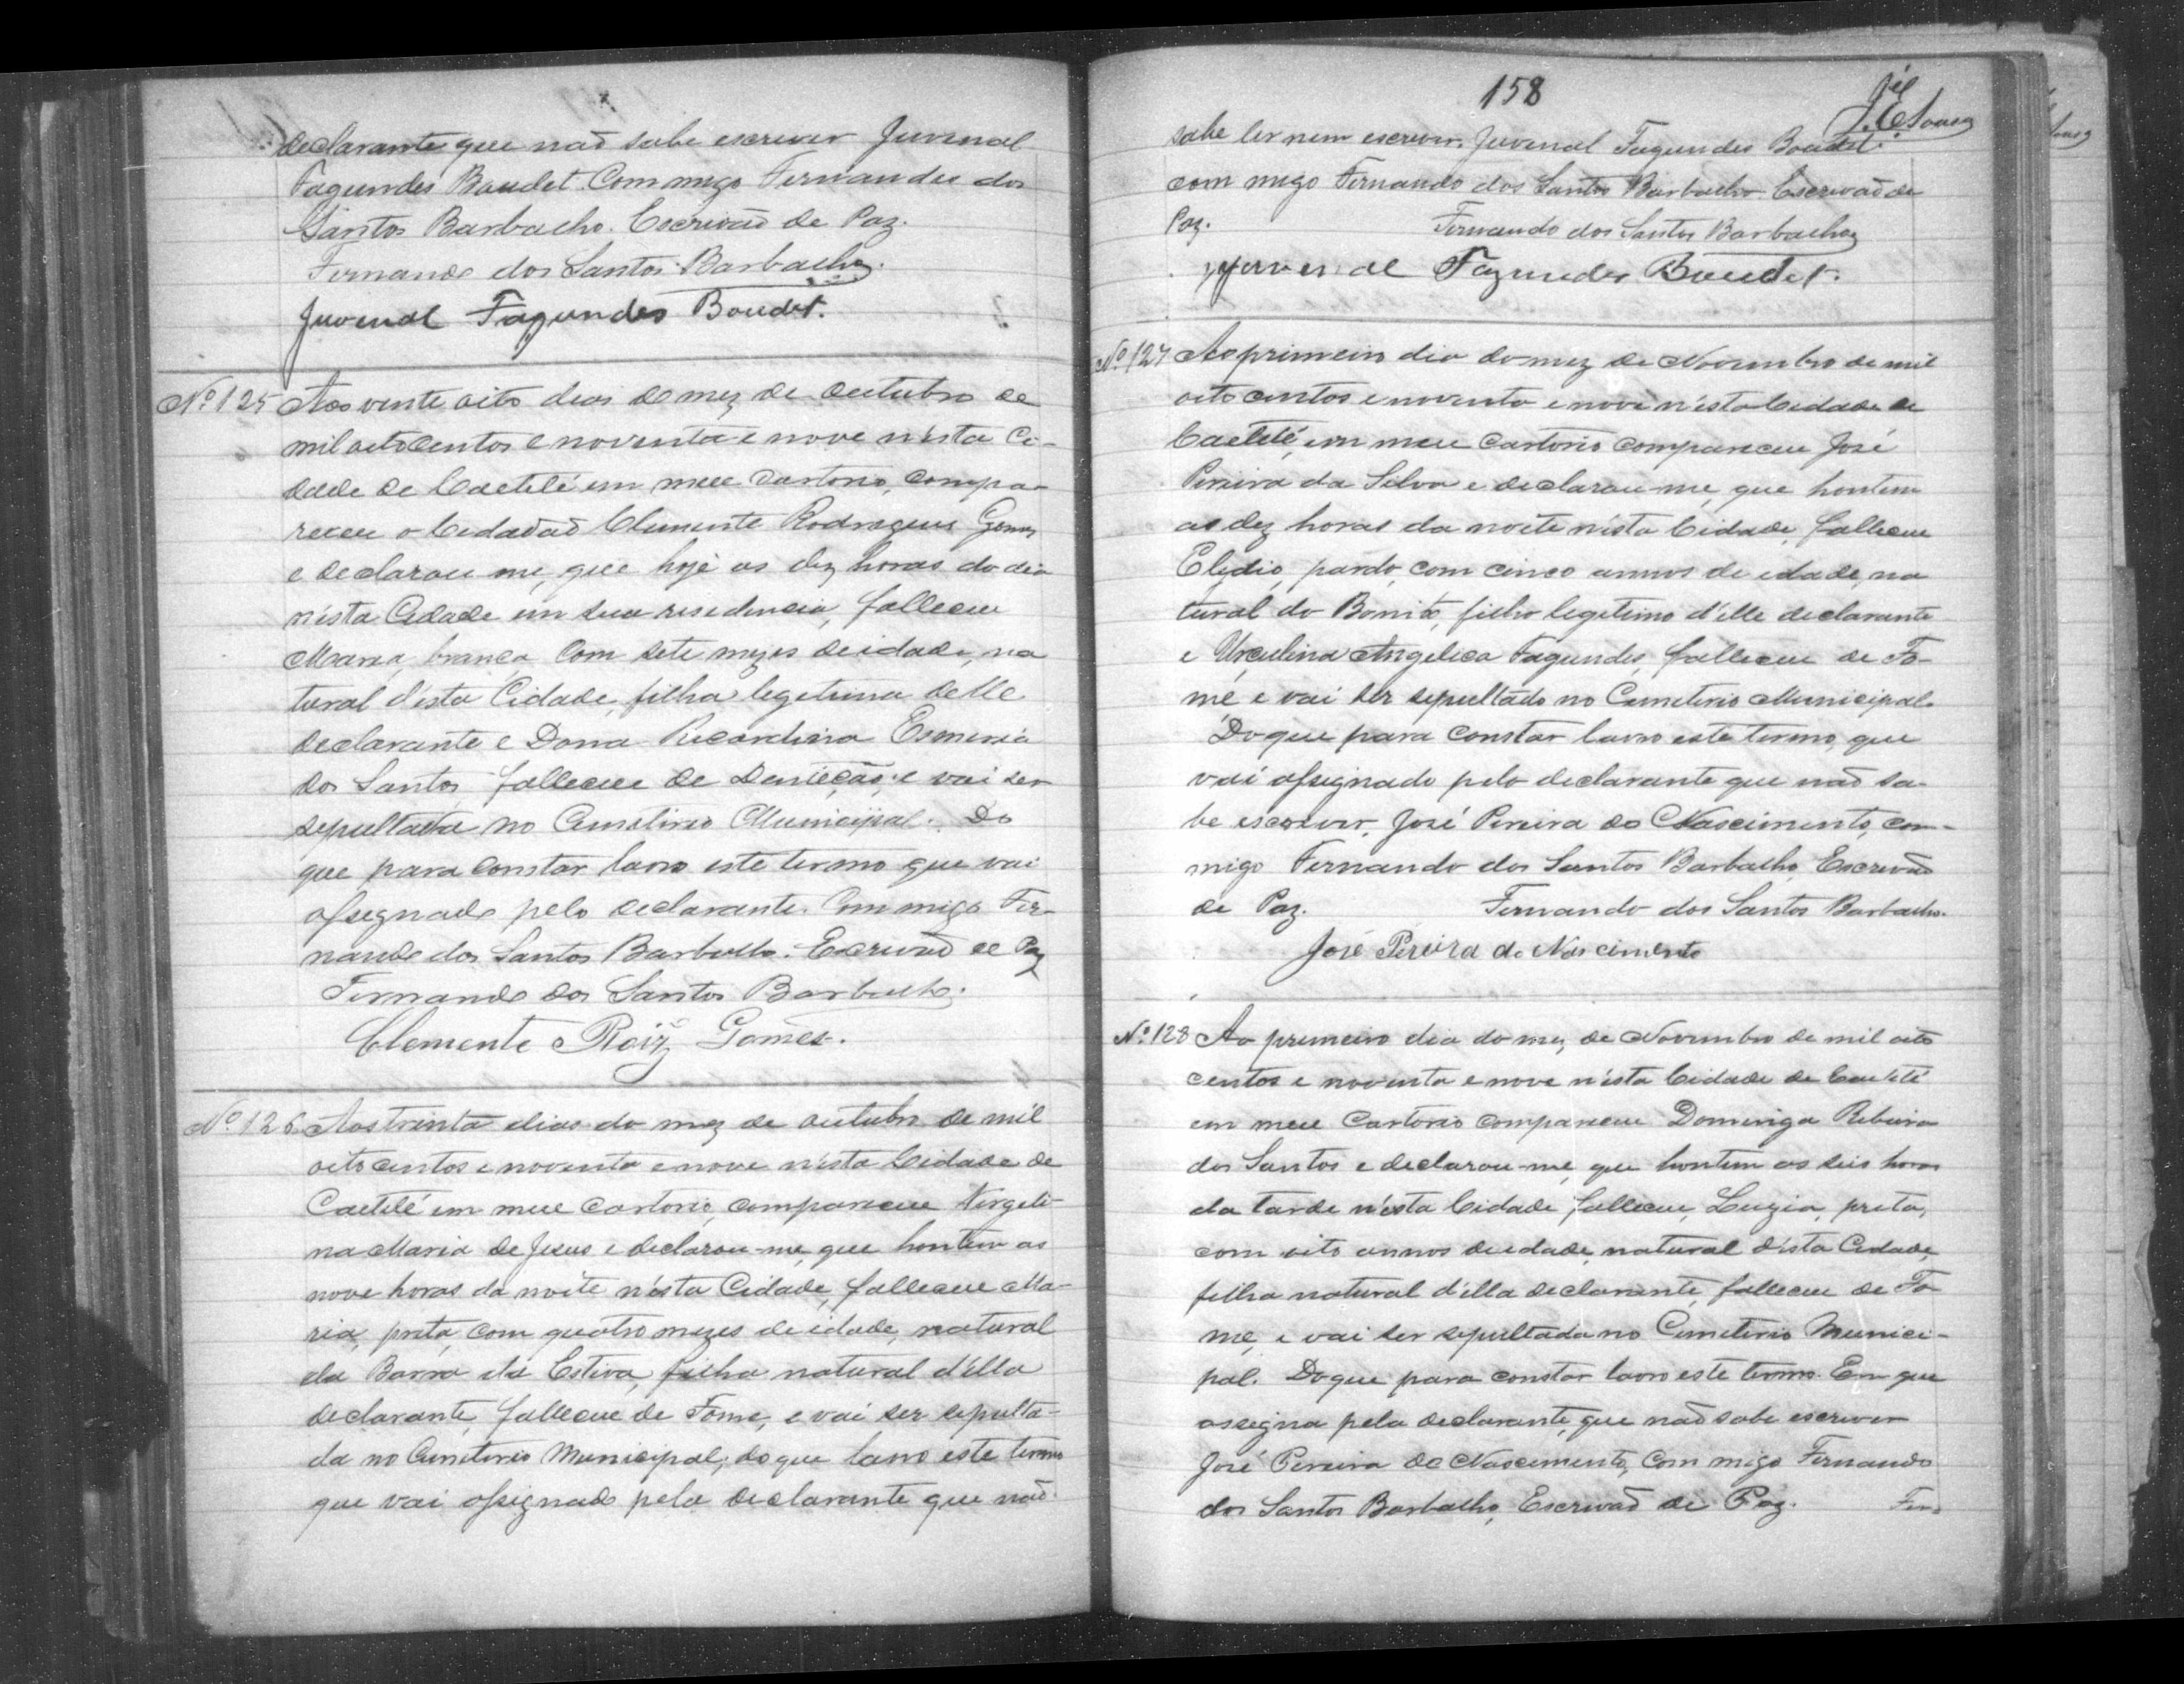 declarante que naõ sabe escrever Juvenal
Fagundes Boudet. Commigo Fernandes dos
Santos Barbalho. Escrivaõ de Paz.
Fernando dos Santos Barbalho.
Juvenal Fagundes Boudet.
Nº 125 Aos vinte oito dias do mez de Outubro de
mil oitocentos e noventa e nove n'esta Ci-
dade de Caetité em meu Cartorio, compa-
receu o Cidadaõ Clemente Rodrigues Gomes
e declarou me, que hoje as dez horas do dia
n'esta Cidade em sua residencia, falleceu
Maria, branca, com sete mezes de idade, na
tural d'esta Cidade, filha legitima delle
declarante e Dona Ricardina Esmeria
dos Santos, falleceu de Denteção; e vai ser
sepultada no Cimeterio Municipal. Do
que para constar lavro este termo que vai
assignado pelo declarante. Commigo Fer-
nando dos Santos Barbalho. Escrivaõ de Paz
Fernando dos Santos Barbalho.
Clemente Roiz Gomes.
Nº 126 Aos trinta dias do mez de outubro de mil
oito centos e noventa e nove n'esta Cidade de
Caetité em meu cartorio, compareceu Virgeli-
na Maria de Jesus e declarou-me, que hontem as
nove horas da noite n'esta Cidade, falleceu Ma-
ria, preta, com quatro mezes de idade, natural
da Barra da Estiva, filha natural d'ella
declarante, falleceu de Fome, e vai ser sepulta-
da no Cimeterio Municipal; do que lavro este termo
que vai assignado pela declarante que naõ
158
sabe ler nem escrever, Juvenal Fagundes Boudet.
com migo Fernando dos Santos Barbalho Escrivaõ de
Paz. Fernando dos Santos Barbalho
Juvenal Fagundes Boudet.
Nº 127 Ao primeiro dia do mez de Novembro de mil
oito centos e noventa e nove n'esta Cidade de
Caetité, em meu Cartorio compareceu José
Pereira da Silva e declarou-me, que hontem
as dez horas da noite n'esta Cidade, falleceu
Elydio, pardo, com cinco annos de idade, na
tural do Bonito, filho legitimo d'elle declarante
e Urculina Angelica Fagundes, falleceu de Fo-
me e vai ser sepultado no Cemeterio Municipal.
Do que para constar lavro este termo, que
vai assignado pelo declarante que naõ sa-
be escrever, José Pereira do Nascimento, com-
migo Fernando dos Santos Barbalho, Escrivaõ
de Paz. Fernando dos Santos Barbalho.
José Pereira do Nascimento
Nº 128 Ao primeiro dia do mez de Novembro de mil oito
centos e noventa e nove n'esta Cidade de Caetité
em meu Cartorio compareceu Dominga Ribeiro
dos Santos e declarou-me, que hontem as seis horas
da tarde n'esta Cidade, falleceu, Luzia, preta,
com oito annos de idade, natural d'esta Cidade,
filha natural d'ella declarante, falleceu de Fo
me, e vai ser sepultada no Cemeterio Munici-
pal. Do que para constar lavro este termo. Em que
assigna pela declarante, que naõ sabe escrever
José Pereira do Nascimento, Com migo Fernando
dos Santos Barbalho, Escrivaõ de Paz. Fer-